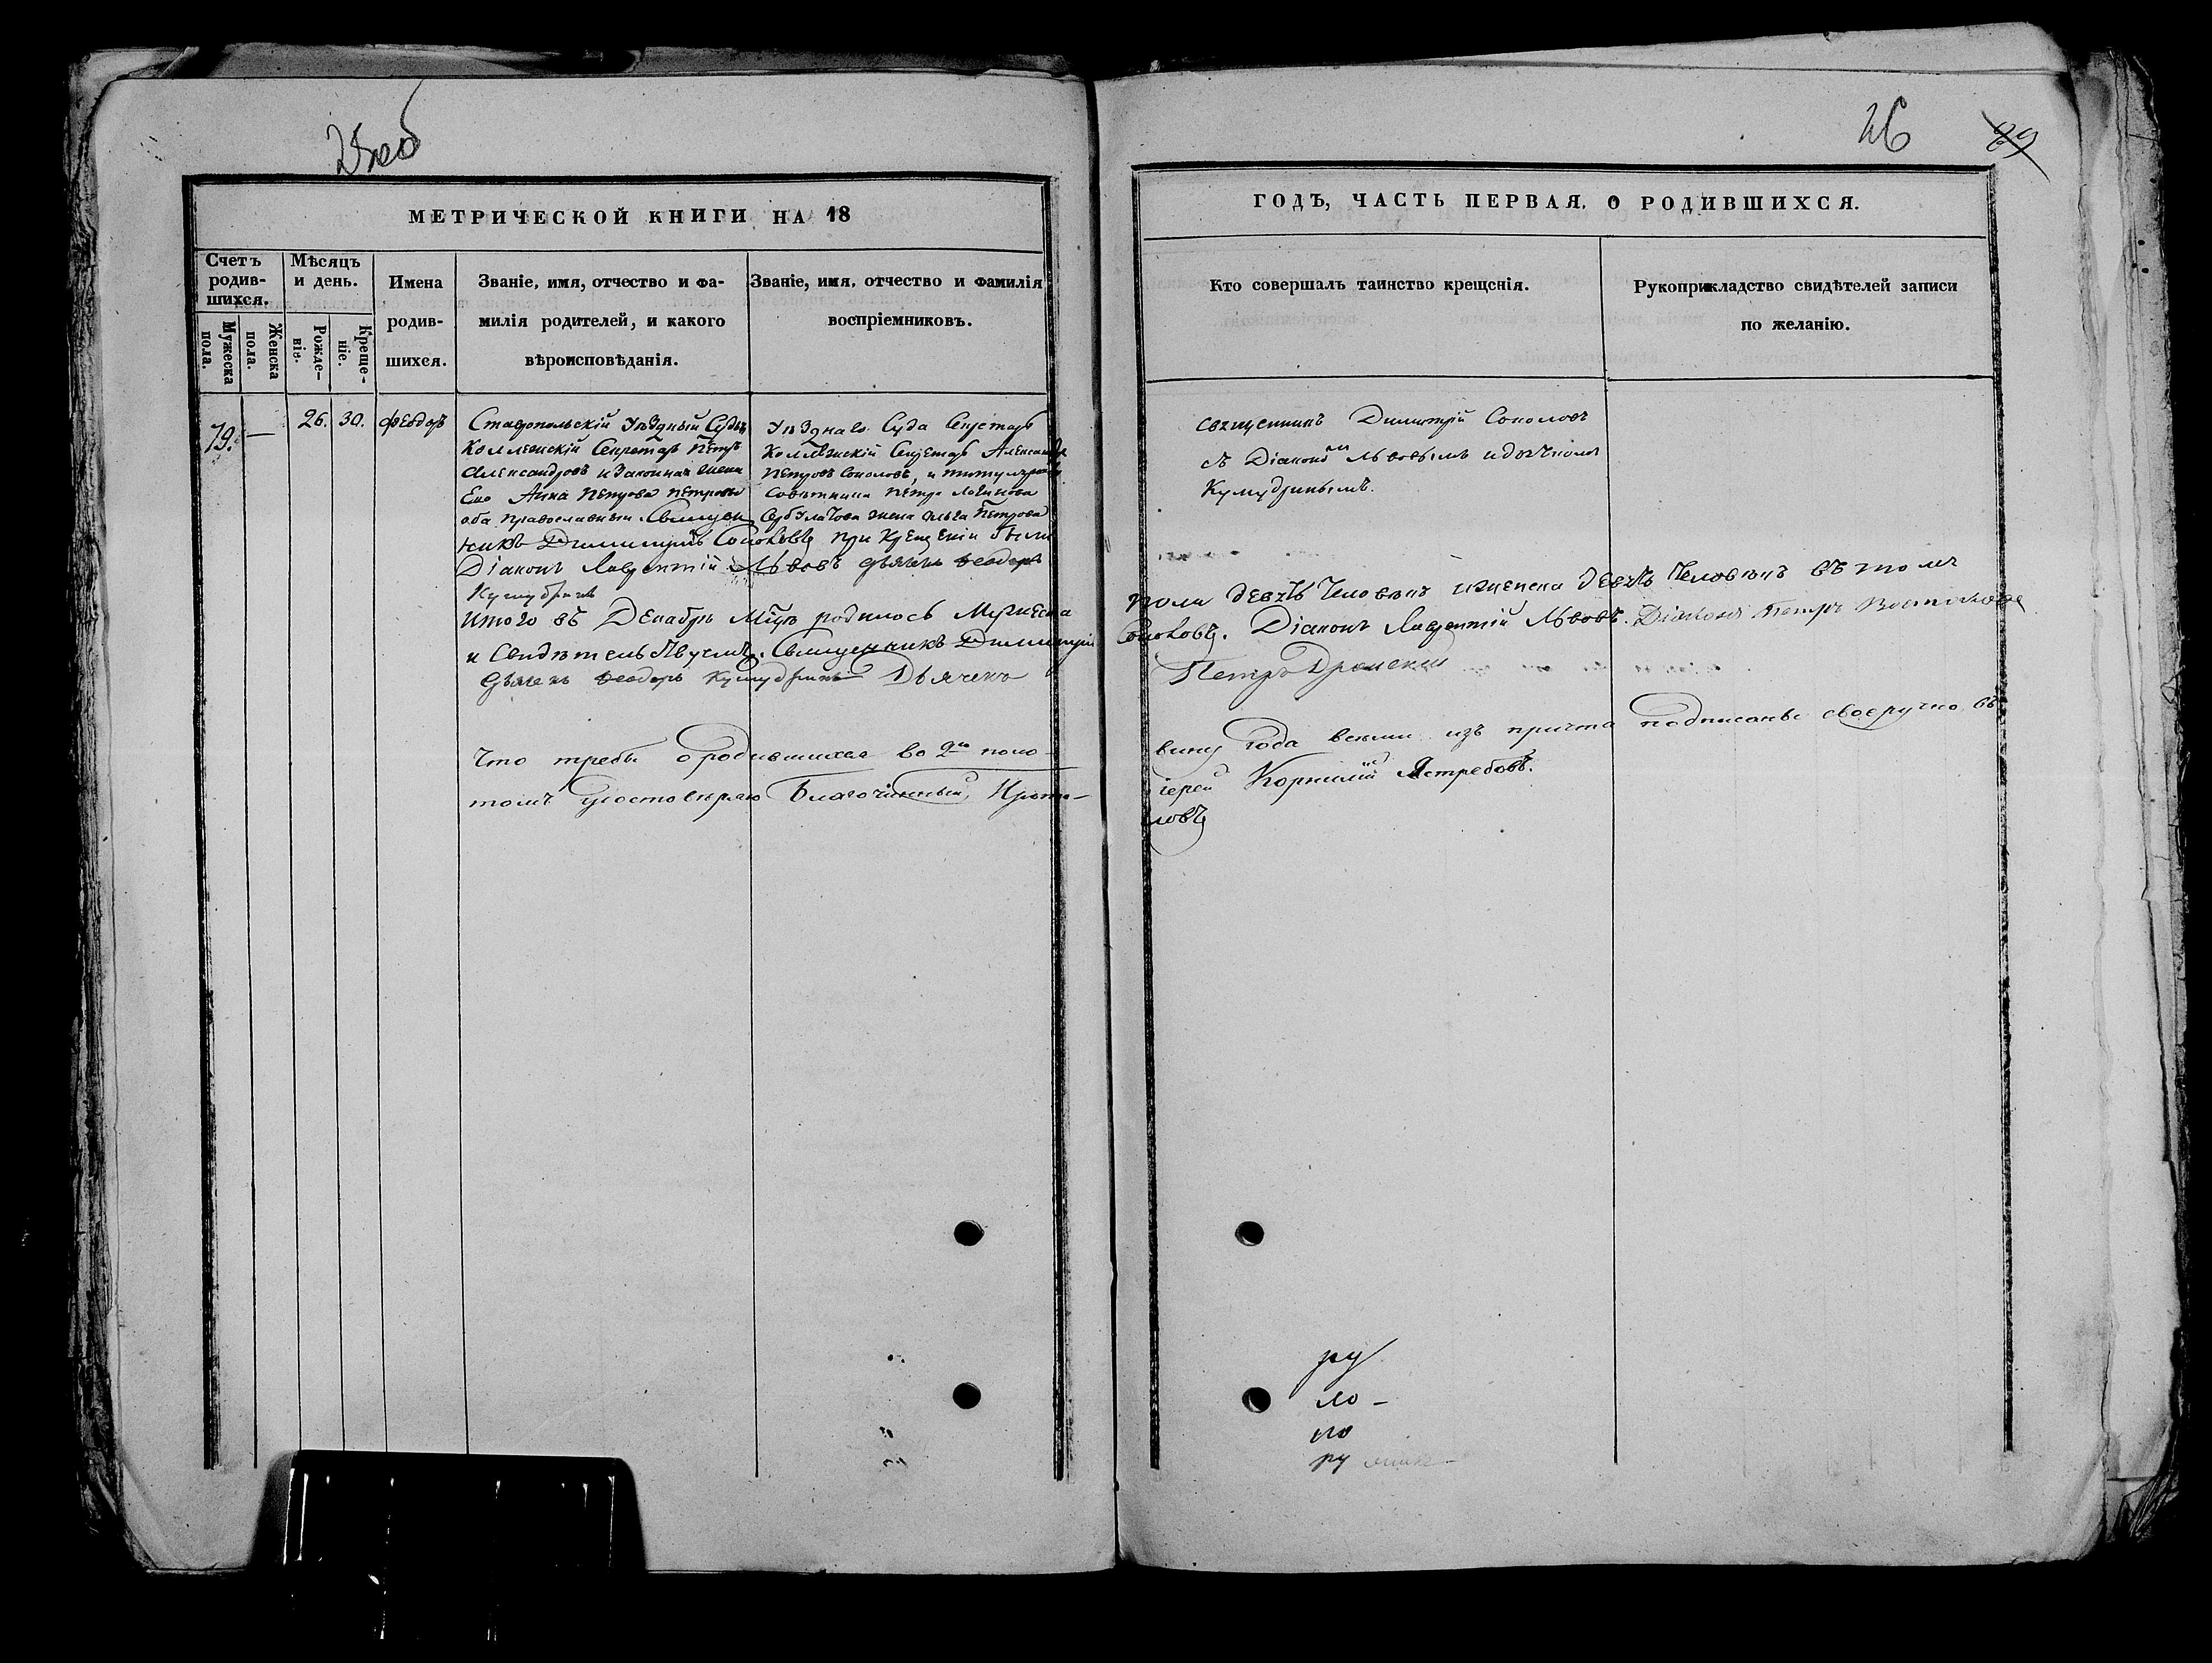 25 об
МЕТРИЧЕСКОЙ КНИГИ НА 18
Счетъ родив-шихся.
Мѣсяцъ и день.
Имена родив-шихся.
Званіе, имя, отчество и фа-
милія родителей, и какого
вѣроисповѣданія.
Званіе, имя, отчество и фамилія
воспріемниковъ.
Мужеска пола.
Женска пола.
Рожде-нія.
Креще-ніе.
79.
—
26.
30.
Феодоръ
Ставропольскій Уѣздный Судья
Коллежскій Секретарь Петръ
Александровъ и законная жена
Его Анна Петрова
оба православныи. Священ
никъ Димитрій Соколовъ при крещеніи были
Діаконъ Лаврентій Львовъ дьячекъ Феодоръ
Кумудринъ
Уѣзднаго Суда Секретарь
Коллежскій Секретарь Александръ
Петровъ Соколовъ, и титулярнаго
Совѣтника Петра
жена Ольга Петрова
Итого въ Декабрѣ Мцѣ родилось Мужеска
и Свидѣтельствуемъ. Священникъ Димитрій
дьячекъ Феодоръ Кумудринъ Дьячекъ
Что требы о родившихся во 2й поло-
томъ удостовѣряю Благочинный Прото-
26
89
ГОДЪ, ЧАСТЬ ПЕРВАЯ. О РОДИВШИХСЯ.
Кто совершалъ таинство крещенія.
Рукоприкладство свидѣтелей записи
по желанію.
священникъ Димитрій Соколовъ
съ Діакономъ Львовымъ и дьячкомъ
Кумудринымъ.
пола девять Человѣкъ и женска девять Человѣкъ въ томъ
Соколовъ. Діаконъ Лаврентій Львовъ. Діаконъ Петръ
Петръ
вину года всеми изъ причта подписаны своеручно въ
іерей Корнилій Ястребовъ.
ловъ
ру
ло-
но
ру